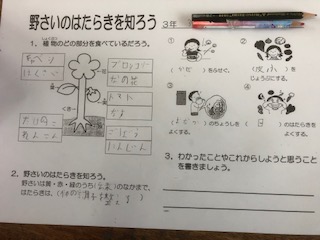 野さいのはたらきを知ろう
3年
1. 植物のどの部分を食べているだろう。
しょくぶつ
キャベツ
はくさい
ブロッコリー
なの花
トマト
なす
れんこん
ごぼう
にんじん
2. 野さいのはたらきを知ろう。
野さいは黄・赤・緑のうち(緑)のなかまで、
はたらきは、(体の調子を整える)
①
(かぜ)をふせぐ。
②
(皮ふ)を
じょうぶにする。
③
()のちょうしを
よくする。
④
()のはたらきを
よくする。
3. わかったことやこれからしようと思うこと
を書きましょう。